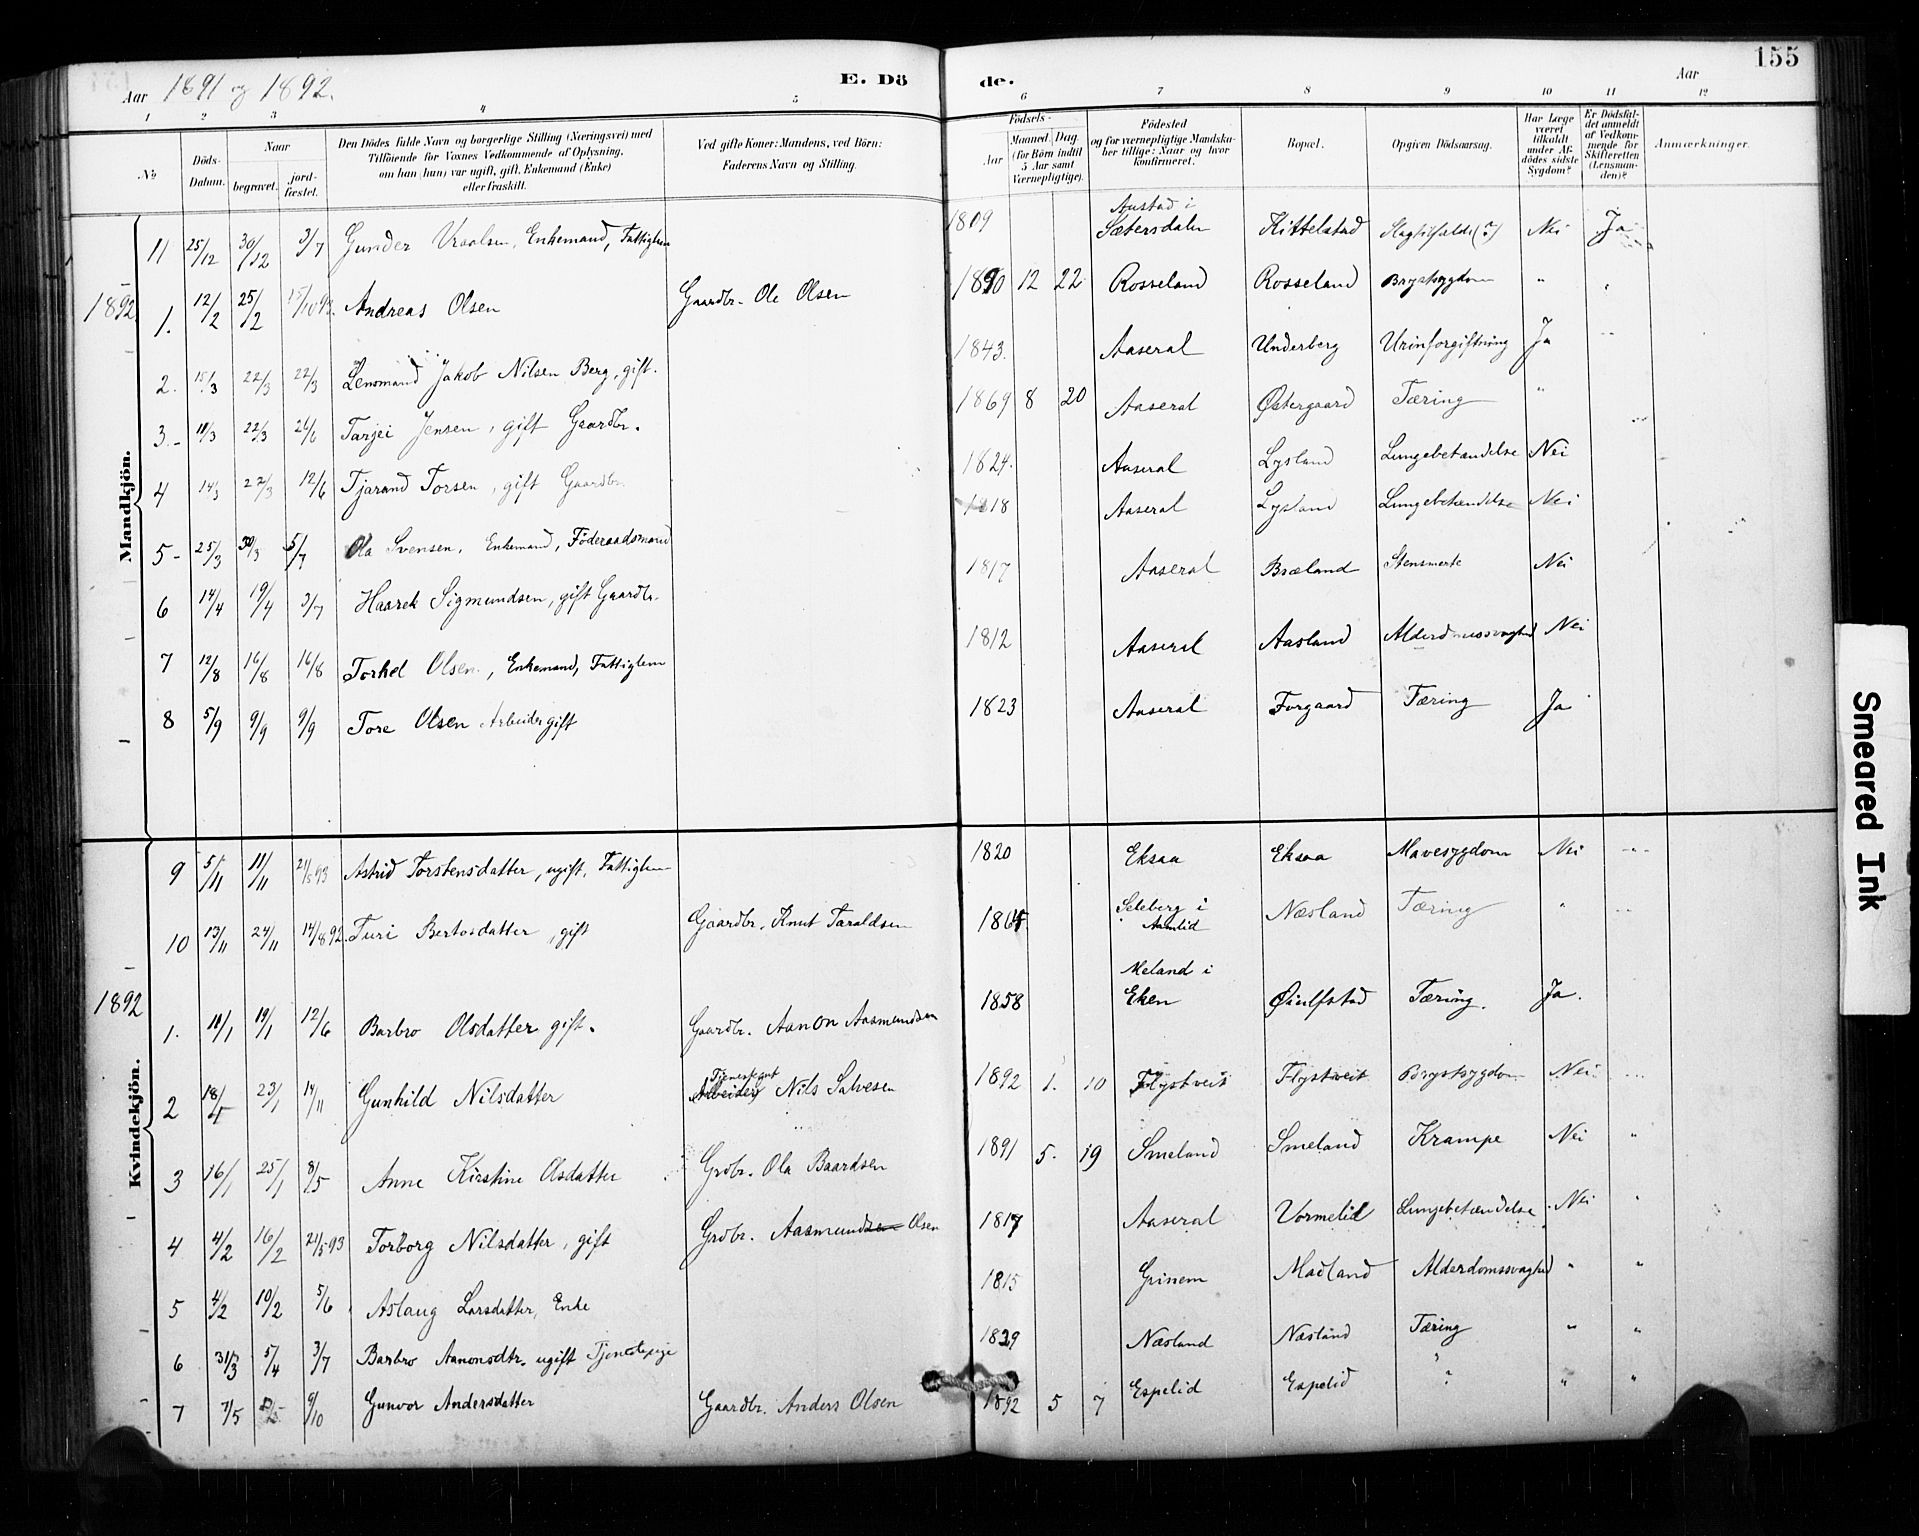 155
Aar 1891 og 1892.
E. Döde.
Aar
1 2 3 4 5 6 7 8 9 10 11 12
No
Döds-Datum.
Naar
begravet.
jord-fæstet.
Den Dödes fulde Navn og borgerlige Stilling (Næringsvei) med Tilföiende for Voxnes Vedkommende af Oplysning, om han (hun) var ugift, gift, Enkemand (Enke) eller fraskilt.
Ved gifte Koner: Mandens, ved Börn: Faderens Navn og Stilling.
Födsels-
Aar
Maaned. Dag. (for Börn indtil 5 Aar samt Værnepligtige).
Födested og for værnepligtige Mandskaber tillige: Naar og hvor konfirmeret.
Bopæl.
Opgiven Dödsaarsag.
Har Læge været tilkaldt under Afdödes sidste Sygdom?
Er Dödsfaldet anmeldt af Vedkommende for Skifteretten (Lensmanden)?
Anmærkninger.
Mandkjön.
11 25/12 30/12 3/7 Gunder Vraalsen, Enkemand, Fattiglem 1809 Austad i Sætersdalen Kittelstad Slagtilfælde (?) Nei Ja
1892
1. 12/2 25/2 15/10 93. Andreas Olsen Gaardbr. Ole Olsen 1890 12 22 Rosseland Rosseland Brystsygdom " "
2. 15/3 22/3 22/3 Lensmand Jakob Nilsen Berg, gift. 1843. Aaseral Underberg Urinforgiftning Ja
3. 18/3 22/3 26/6 Tarjei Jensen, gift Gaardbr. 1869 8 20 Aaseral Østergaard Tæring "
4 14/3 22/3 12/6 Tjarand Torsen, gift Gaardbr. 1824. Aaseral Lysland Lungebetændelse Nei
5 25/3 30/3 5/7 Ola Svensen, Enkemand, Föderaadsmand 1818 Aaseral Lysland Lungebetændelse Nei
6 14/4 19/4 3/7 Haarek Sigmundsen, gift Gaardbr. 1817 Aaseral Bræland Stensmerte Nei
7 12/8 16/8 16/8 Torkel Olsen, Enkemand, Fattiglem 1812 Aaseral Aasland Alderdomssvaghed Nei
8 5/9 9/9 9/9 Tore Olsen Arbeider gift 1823 Aaseral Forgaard Tæring Ja
Kvindekjön.
9 5/11 11/11 21/5 93 Astrid Torstensdatter, ugift, Fattiglem 1820 Eksaa Eksaa Mavesygdom Nei "
10 13/11 24/11 14/8 92. Turi Bertosdatter, gift Gaardbr. Knut Taraldsen 1864 Seleberg i Aamlid Næsland Tæring "
1892
1. 11/1 19/1 12/6 Barbro Olsdatter gift. Gaardbr. Aanon Aasmundsen 1858 Meland i Eken Øiulfstad Tæring. Ja.
2 18/1 23/1 14/11 Gunhild Nilsdatter Arbeider Tjenestgut Nils Salvesen 1892 1. 10 Flystveit Flystveit Brystsygdom Nei
3 16/1 25/1 8/5 Anne Kirstine Olsdatter Grdbr. Ola Baardsen 1891 5. 19 Smeland Smeland Krampe Nei "
4 4/2 16/2 21/5 93 Torborg Nilsdatter, gift Grdbr. Aasmundsen Olsen 1817 Aaseral Vormelid Lungebetændelse Nei "
5 4/2 10/2 5/6 Aslaug Larsdatter, Enke 1815 Grinem Madland Alderdomssvaghed " "
6 31/3 5/4 3/7 Barbro Aanonsdtr. ugift Tjenestepige 1839 Næsland Næsland Tæring " "
7 7/5 9/10 Gunvor Andersdatter Gaardbr. Anders Olsen 1892 5 7 Espelid Espelid " " "
Smeared Ink